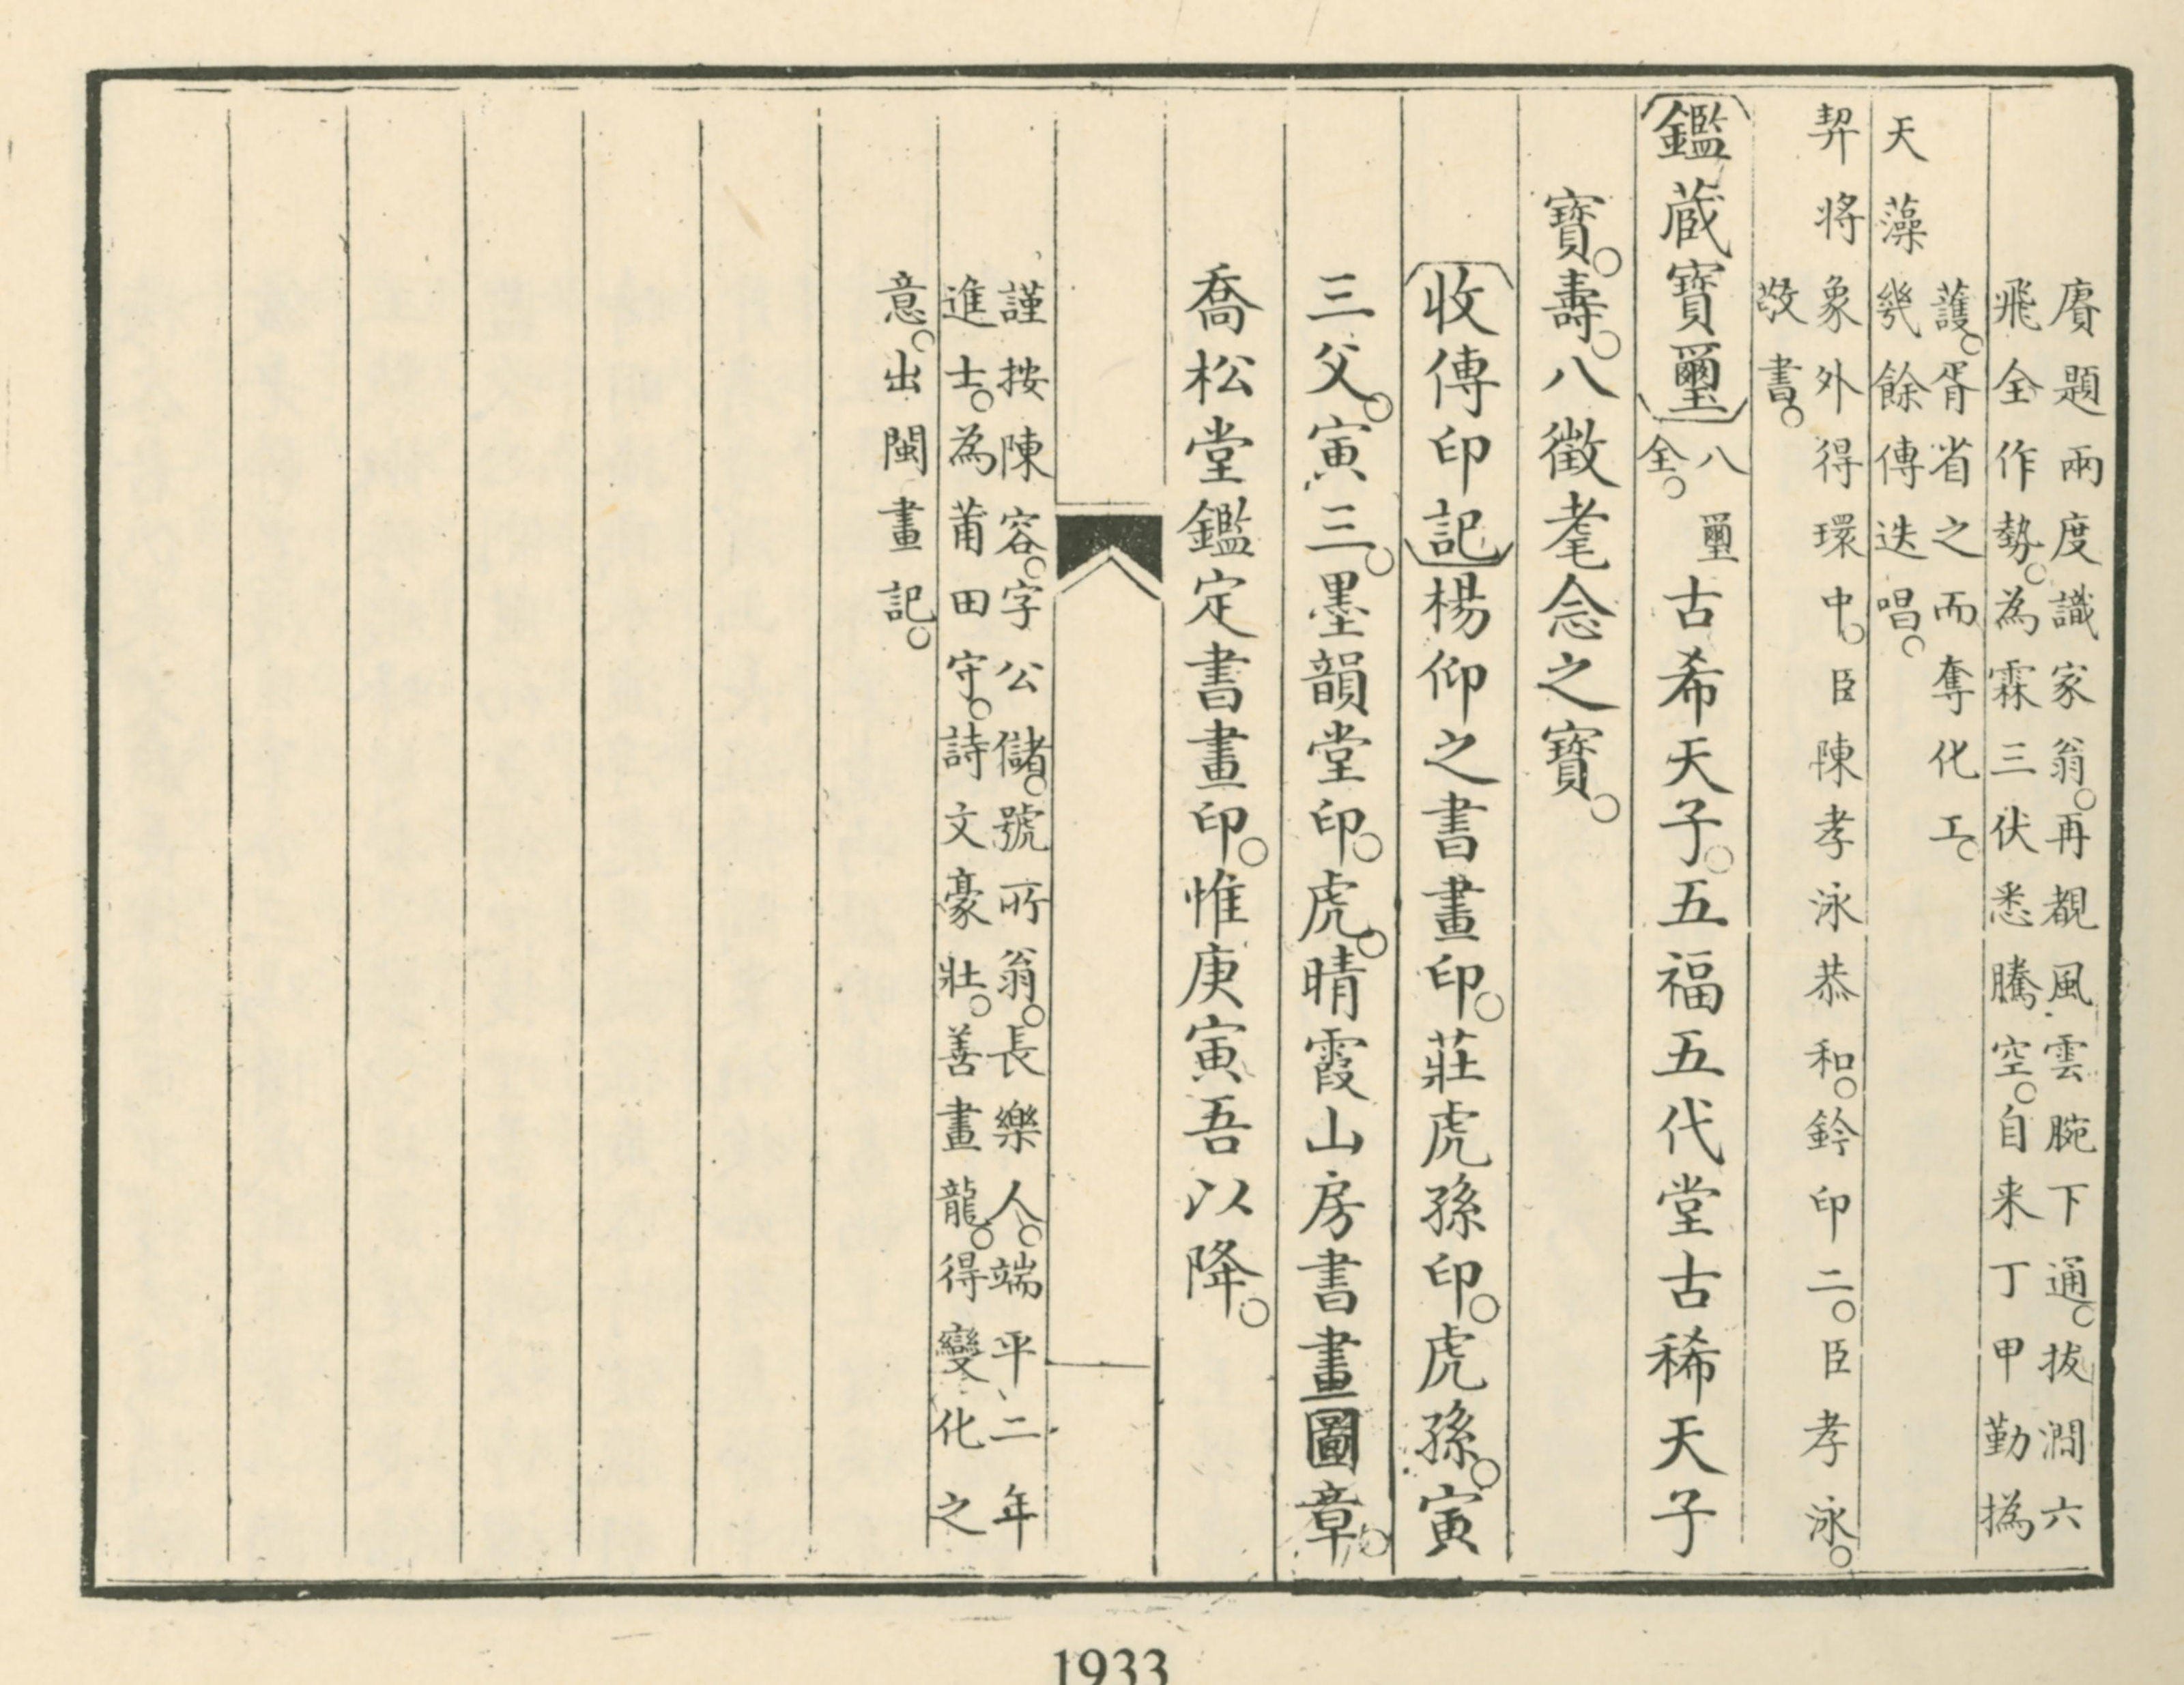 賡題兩度識家翁。再覩風雲腕下通。拔澗六
飛全作勢。為霖三伏悉騰空。自来丁甲勤撝
護。胥省之而奪化工。
天藻幾餘傳迭唱。
契將象外得環中。臣陳孝泳恭和。鈐印二。臣孝泳。
敬書。
〔鑑蔵寶璽〕八璽
全。
古希天子。五福五代堂古稀天子
寶。壽。八徵耄念之寶。
〔收傳印記〕楊仰之書畫印。莊虎孫印。虎孫。寅
三父。寅三。墨韻堂印。虎。晴霞山房書畫圖章。
喬松堂鑑定書畫印。惟庚寅吾以降。
謹按陳容。字公儲。號所翁。長樂人。端平二年
進士。為莆田守。詩文豪壯。善畫龍。得變化之
意。出閩畫記。
1933